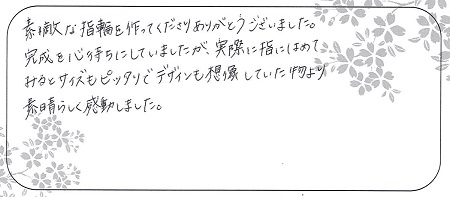 素敵な指輪を作ってくださりありがとうございました。
完成を心待ちにしていましたが、実際に指にはめて
みるとサイズもピッタリでデザインも想像していた物より
素晴らしく感動しました。